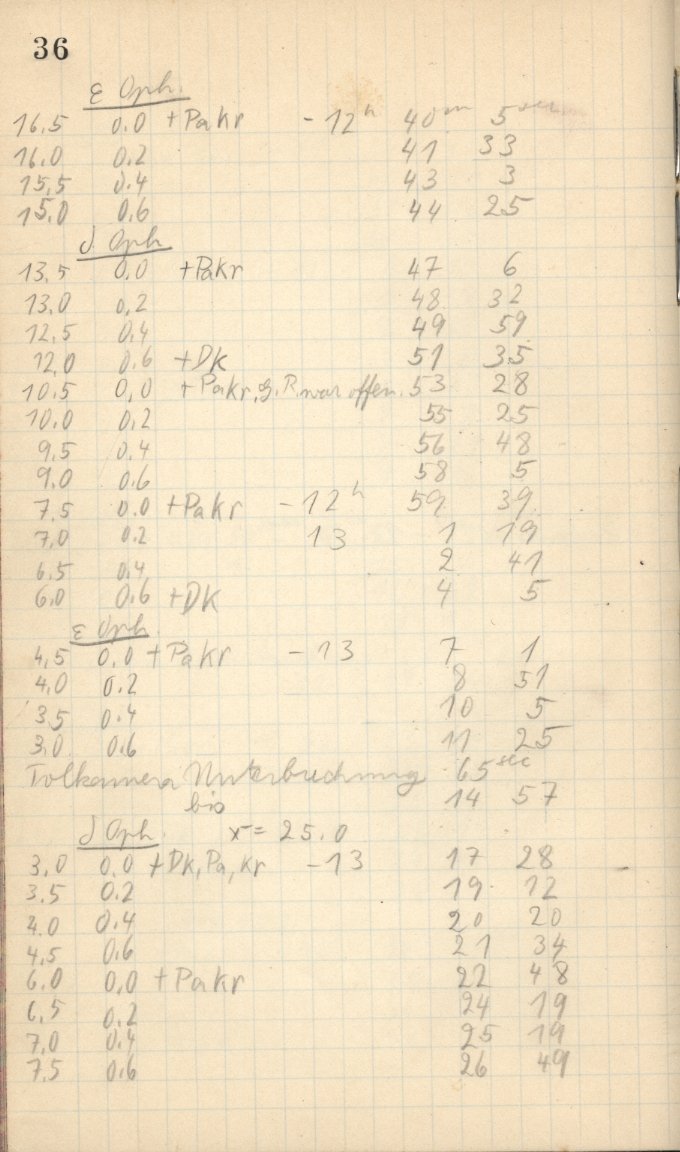 36
ε Oph.
16.5 0.0 + Pa Kr - 12 h 40 m 5 sec
16.0 0.2 41 33
15,5 0.4 43 3
15.0 0.6 44 25
δ Oph
13,5 0.0 + Pakr 47 6
13,0 0,2 48 32
12,5 0.4 49 59
12,0 0.6 + DK 51 35
10.5 0,0 + Pakr, g. R. war offen. 53 28
10.0 0.2 55 25
9,5 0.4 56 48
9,0 0.6 58 5
7,5 0.0 + Pa Kr - 12 h 59 39
7,0 0.2 13 1 19
6,5 0.4 2 41
6,0 0.6 + DK 4 5
ε Oph.
4,5 0.0 + Pa Kr - 13 7 1
4,0 0.2 8 51
3,5 0.4 10 5
3,0 0.6 11 25
Unterbrechung 65 sec
bis 14 57
δ Oph. x = 25.0
3,0 0.0 + Dk, Pa, Kr - 13 17 28
3,5 0.2 19 12
4.0 0.4 20 20
4,5 0.6 21 34
6.0 0,0 + Pa Kr 22 48
6,5 0.2 24 19
7,0 0.4 25 19
7,5 0.6 26 49